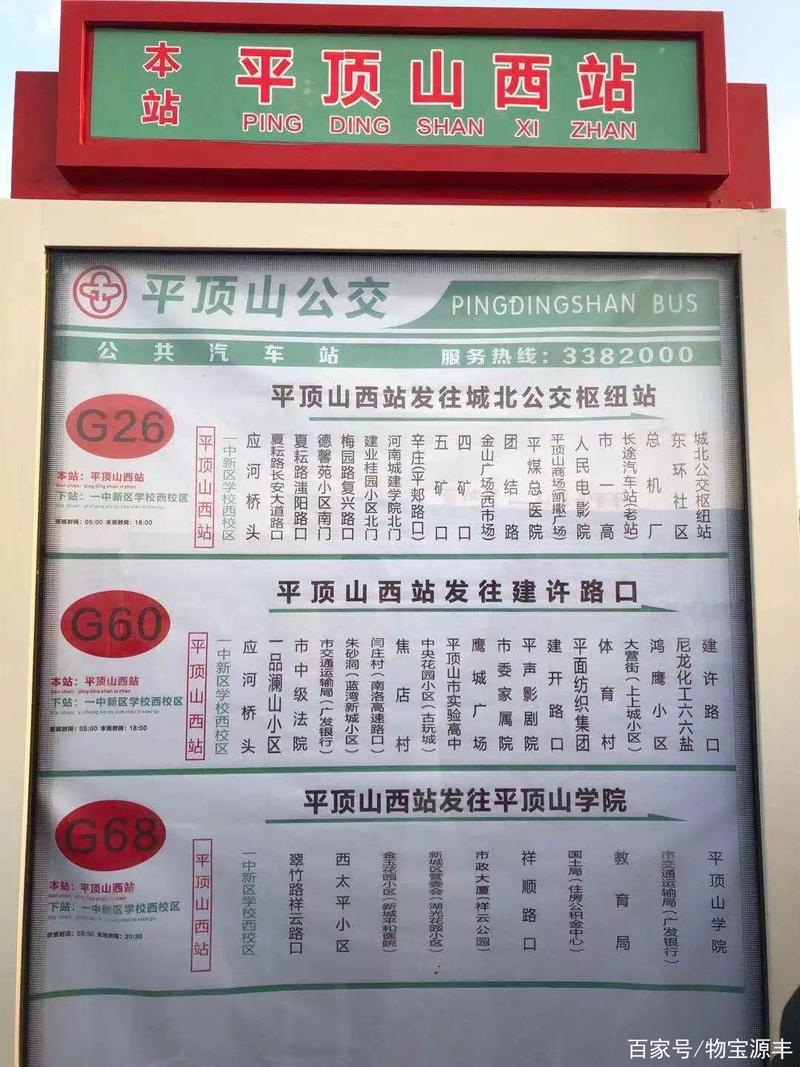 本站
平顶山西站
PING DING SHAN XI ZHAN
平顶山公交
PINGDINGSHAN BUS
公共汽车站
服务热线：3382000
G26
平顶山西站发往城北公交枢纽站
本站：平顶山西站
下站：一中新区学校西校区
首班时间：05:00 末班时间：18:00
平顶山西站
一中新区学校西校区
应河桥头
夏耘路长安大道路口
夏耘路滍阳路口
德馨苑小区南门
梅园路复兴路口
建业桂园小区北门
河南城建学院北门
辛庄(平郏路口)
五矿口
四矿口
金山广场(西市场)
团结路
平煤总医院
平顶山商场凯撒广场
人民电影院
市一高
长途汽车站(老站)
总机厂
东环社区
城北公交枢纽站
G60
平顶山西站发往建许路口
本站：平顶山西站
下站：一中新区学校西校区
首班时间：05:00 末班时间：18:00
平顶山西站
一中新区学校西校区
应河桥头
一品澜山小区
市中级法院
市交通运输局(广发银行)
朱砂洞(蓝湾新城小区)
闫庄村(南洛高速路口)
焦店村
中央花园小区(古玩城)
平顶山市实验高中
鹰城广场
市委家属院
平声影剧院
建开路口
平面纺织集团
体育村
大营街(上上城小区)
鸿鹰小区
尼龙化工六六盐
建许路口
G68
平顶山西站发往平顶山学院
本站：平顶山西站
下站：一中新区学校西校区
首班时间：05:50 末班时间：20:30
平顶山西站
一中新区学校西校区
翠竹路祥云路口
西太平小区
金玉花园小区(新城平和医院)
新城区管委会(湖光花园小区)
市政大厦(祥云公园)
祥顺路口
国土局(住房公积金中心)
教育局
市交通运输局(广发银行)
平顶山学院
百家号/物宝源丰